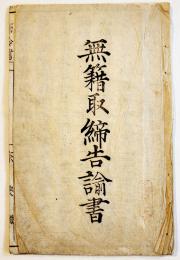 無籍取締告諭書